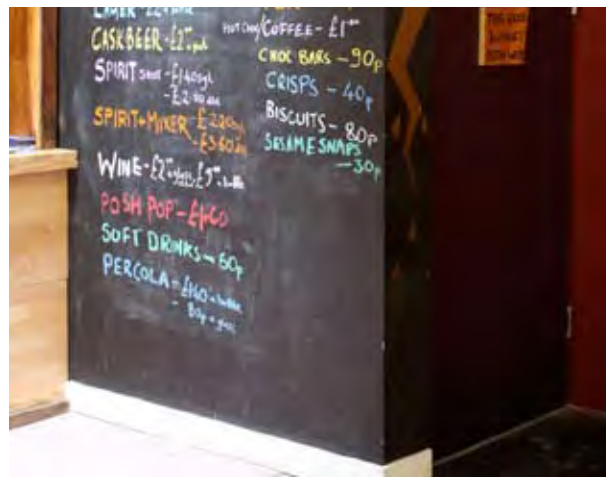 CASK BEER - £2
SPIRIT SHOT - £1.40 sgl
- £2
SPIRIT + MIXER - £2.20 sgl
- £3.60 dbl
WINE - £2 glass, £9 bottle
POSH POP - £1.60
SOFT DRINKS - 60p
PERCOLA - £1.60 bottle
- 80p glass
HOT CHOC/COFFEE - £1
CHOC BARS - 90p
CRISPS - 40p
BISCUITS - 80p
SESAME SNAPS
- 30p